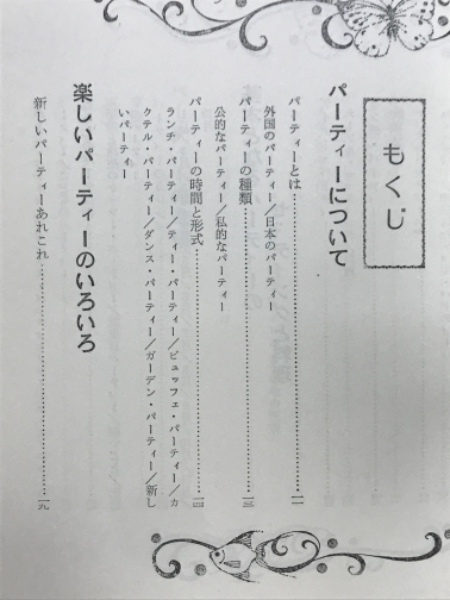 もくじ
パーティーについて
パーティーとは……………………一一
外国のパーティー/日本のパーティー
パーティーの種類……………………一三
公的なパーティー/私的なパーティー
パーティーの時間と形式……………………一四
ランチ・パーティー/ティー・パーティー/ビュッフェ・パーティー/カ
クテル・パーティー/ダンス・パーティー/ガーデン・パーティー/新し
いパーティー
楽しいパーティーのいろいろ
新しいパーティーあれこれ……………………一九